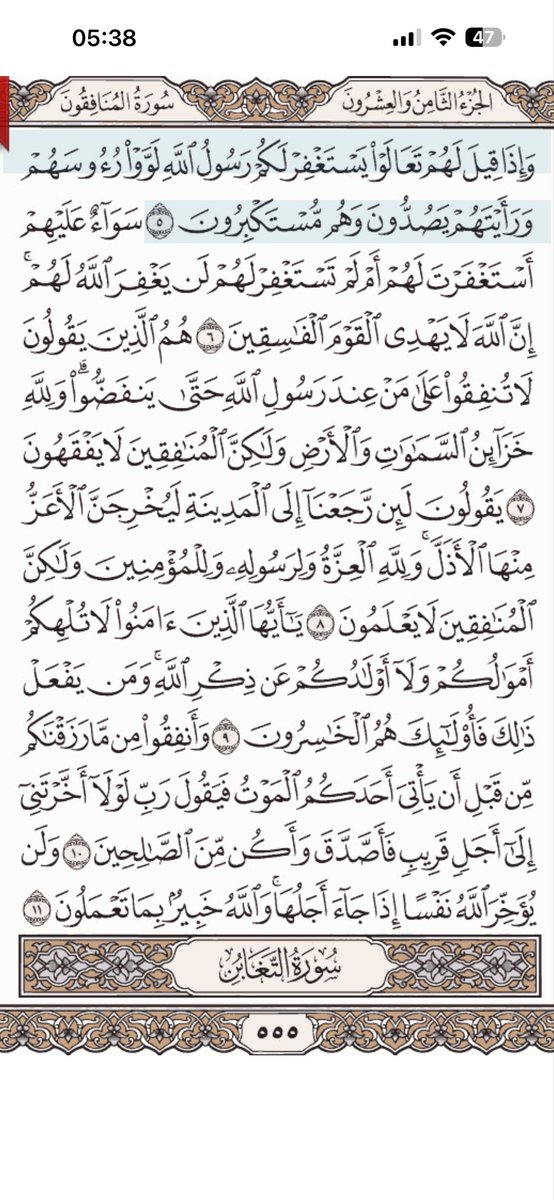 05:38
47
سُورَةُ المُنَافِقُونَ
الجُزْءُ الثَّامِنُ وَالعِشْرُونَ
وَإِذَا قِيلَ لَهُمۡ تَعَالَوۡاْ يَسۡتَغۡفِرۡ لَكُمۡ رَسُولُ ٱللَّهِ لَوَّوۡاْ رُءُوسَهُمۡ
وَرَأَيۡتَهُمۡ يَصُدُّونَ وَهُم مُّسۡتَكۡبِرُونَ ٥ سَوَآءٌ عَلَيۡهِمۡ
أَسۡتَغۡفَرۡتَ لَهُمۡ أَمۡ لَمۡ تَسۡتَغۡفِرۡ لَهُمۡ لَن يَغۡفِرَ ٱللَّهُ لَهُمۡۚ
إِنَّ ٱللَّهَ لَا يَهۡدِي ٱلۡقَوۡمَ ٱلۡفَٰسِقِينَ ٦ هُمُ ٱلَّذِينَ يَقُولُونَ
لَا تُنفِقُواْ عَلَىٰ مَنۡ عِندَ رَسُولِ ٱللَّهِ حَتَّىٰ يَنفَضُّواْۗ وَلِلَّهِ
خَزَآئِنُ ٱلسَّمَٰوَٰتِ وَٱلۡأَرۡضِ وَلَٰكِنَّ ٱلۡمُنَٰفِقِينَ لَا يَفۡقَهُونَ
٧ يَقُولُونَ لَئِن رَّجَعۡنَآ إِلَى ٱلۡمَدِينَةِ لَيُخۡرِجَنَّ ٱلۡأَعَزُّ
مِنۡهَا ٱلۡأَذَلَّۚ وَلِلَّهِ ٱلۡعِزَّةُ وَلِرَسُولِهِۦ وَلِلۡمُؤۡمِنِينَ وَلَٰكِنَّ
ٱلۡمُنَٰفِقِينَ لَا يَعۡلَمُونَ ٨ يَٰٓأَيُّهَا ٱلَّذِينَ ءَامَنُواْ لَا تُلۡهِكُمۡ
أَمۡوَٰلُكُمۡ وَلَآ أَوۡلَٰدُكُمۡ عَن ذِكۡرِ ٱللَّهِۚ وَمَن يَفۡعَلۡ
ذَٰلِكَ فَأُوْلَٰٓئِكَ هُمُ ٱلۡخَٰسِرُونَ ٩ وَأَنفِقُواْ مِن مَّا رَزَقۡنَٰكُم
مِّن قَبۡلِ أَن يَأۡتِيَ أَحَدَكُمُ ٱلۡمَوۡتُ فَيَقُولَ رَبِّ لَوۡلَآ أَخَّرۡتَنِيٓ
إِلَىٰٓ أَجَلٖ قَرِيبٖ فَأَصَّدَّقَ وَأَكُن مِّنَ ٱلصَّٰلِحِينَ ١٠ وَلَن
يُؤَخِّرَ ٱللَّهُ نَفۡسًا إِذَا جَآءَ أَجَلُهَاۚ وَٱللَّهُ خَبِيرُۢ بِمَا تَعۡمَلُونَ ١١
سُورَةُ التَّغَابُنِ
٥٥٥